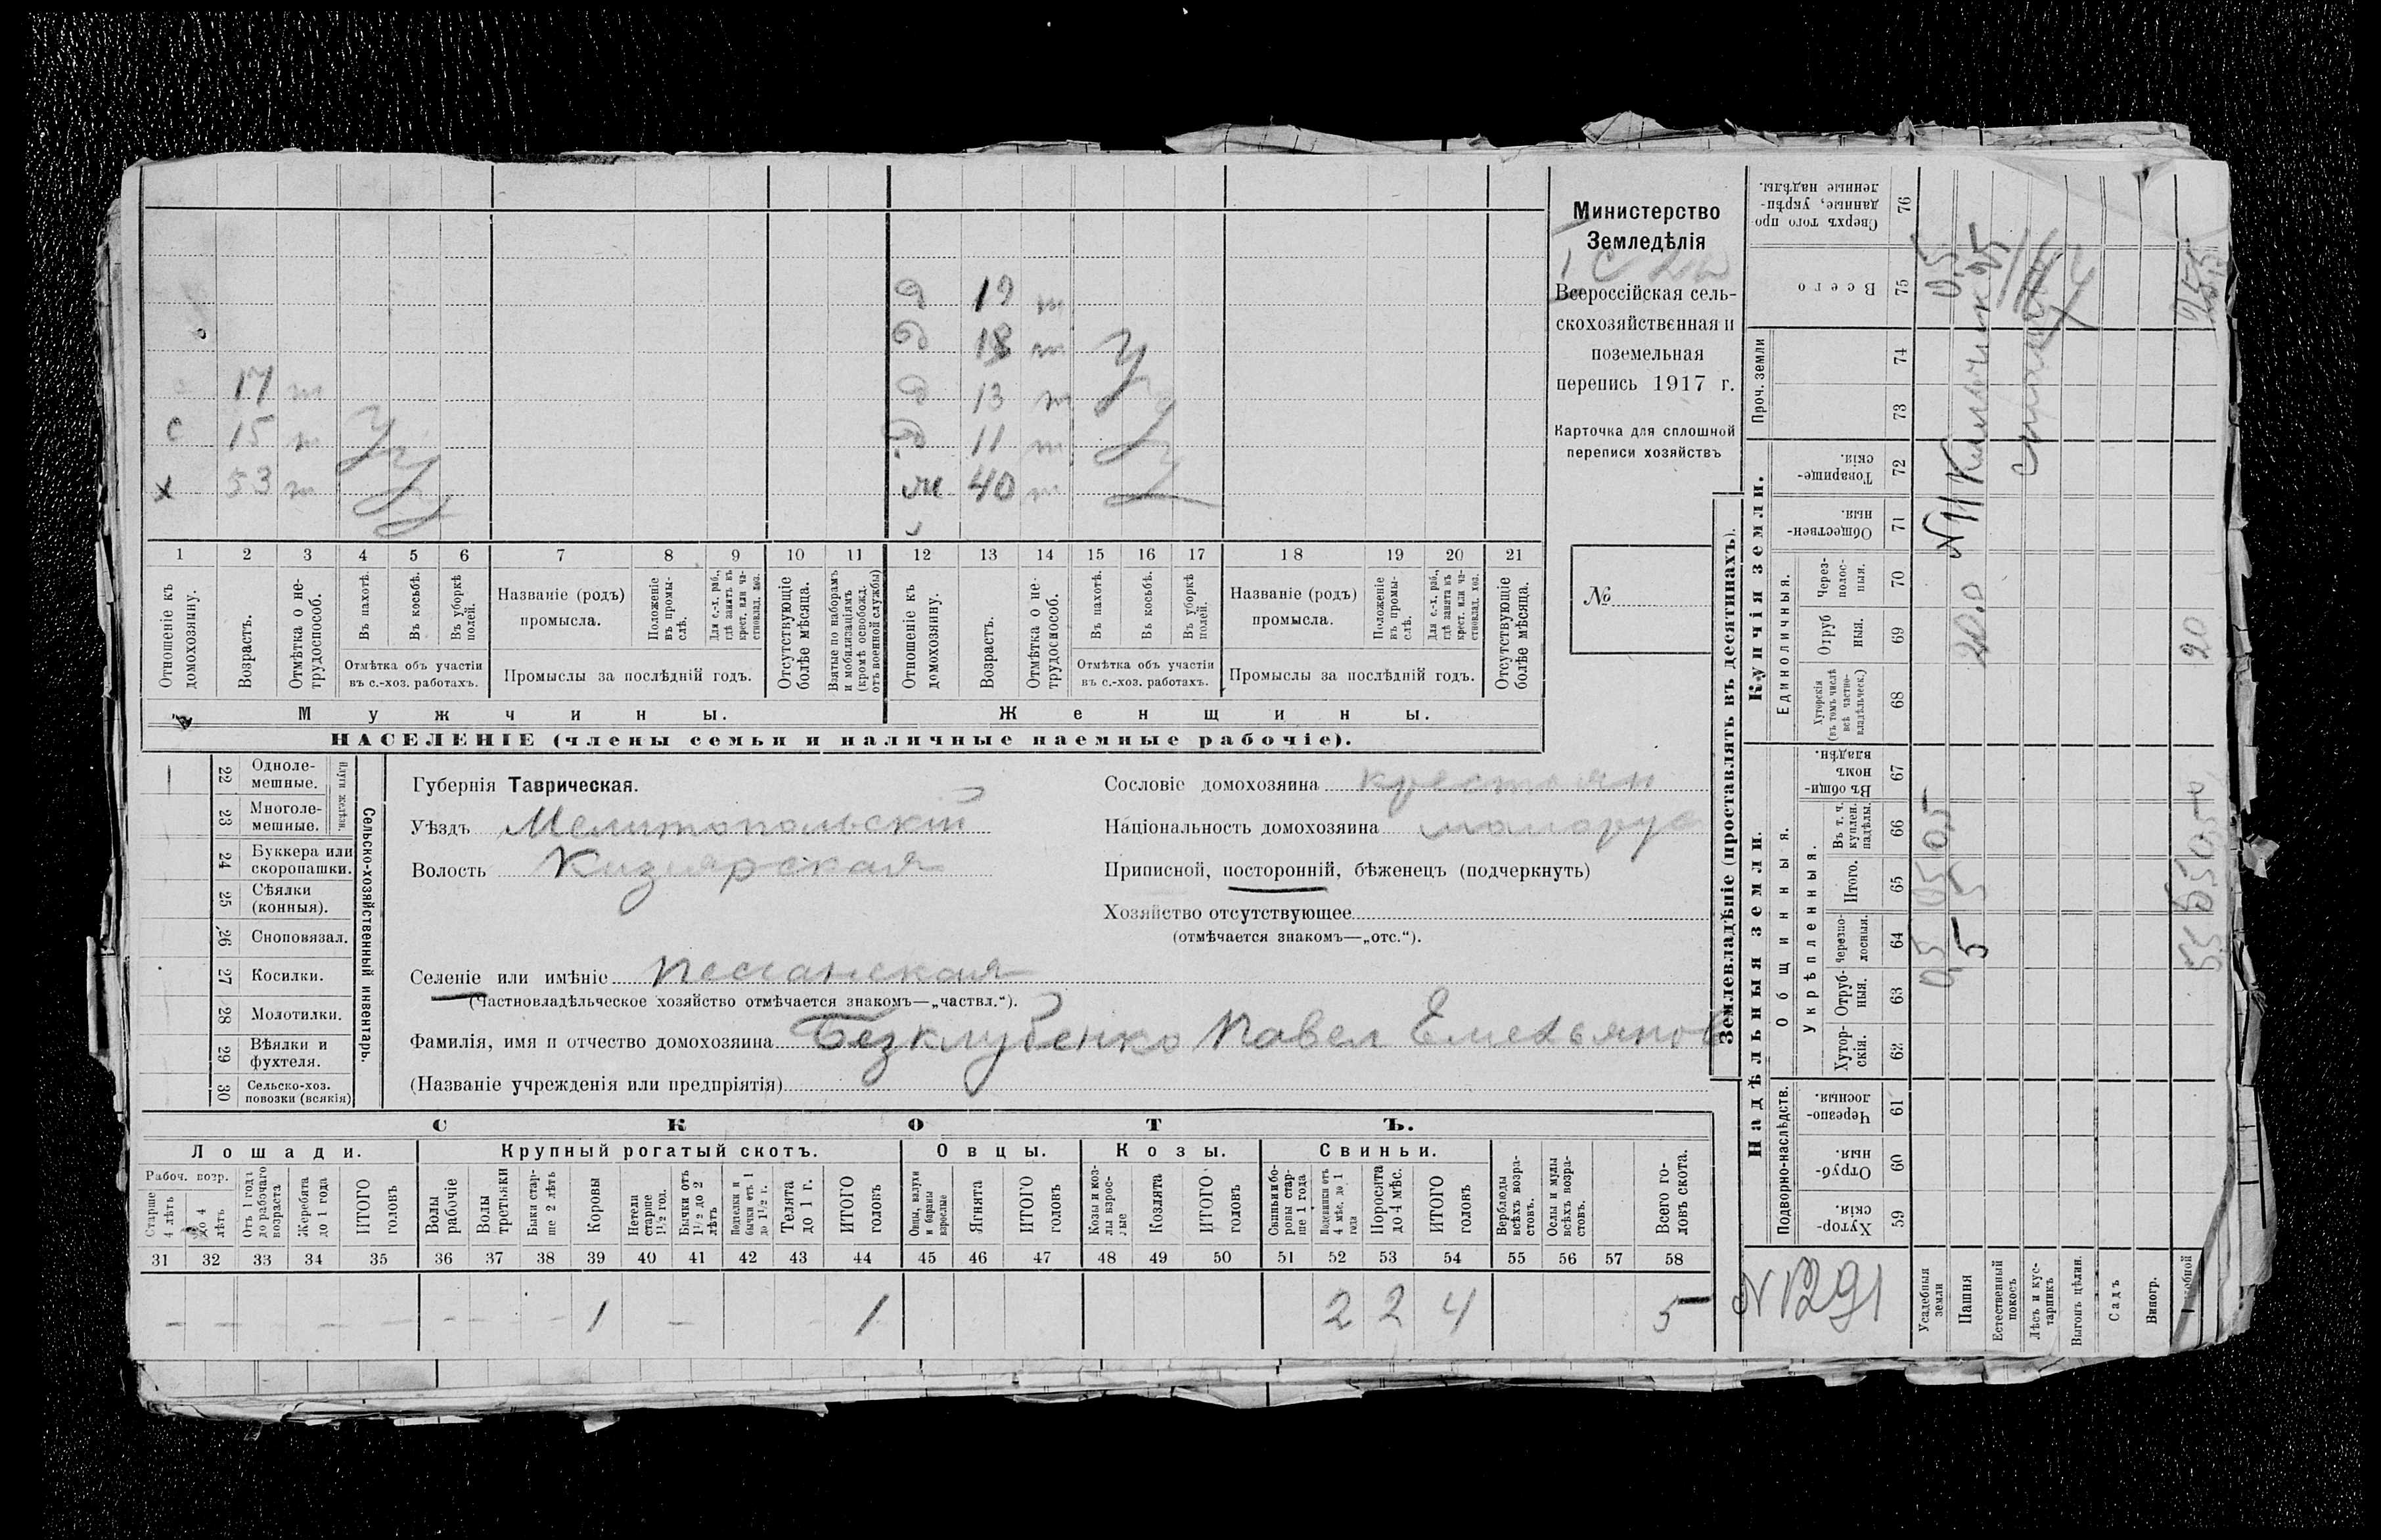 Министерство
Земледѣлія
Всероссійская сель-
скохозяйственная и
поземельная
перепись 1917 г.
Карточка для сплошной
переписи хозяйствъ
№
д 19 т
д 18 т
17 т д 13 т
с 15 т д 11 т
х 53 т ж 40 т
1 2 3 4 5 6 7 8 9 10 11 12 13 14 15 16 17 18 19 20 21
Отношеніе къ домохозяину.
Возрастъ.
Отмѣтка о не-трудоспособ.
Въ пахотѣ.
Въ косьбѣ.
Въ уборкѣ полей.
Отмѣтка объ участіи
въ с.-хоз. работахъ.
Названіе (родъ)
промысла.
Положеніе въ промы-слѣ.
Для с.-х. раб., гдѣ занятъ въ крест. или ча-стновлад. хоз.
Промыслы за послѣдній годъ.
Отсутствующіе болѣе мѣсяца.
Взятые по наборамъ и мобилизаціямъ (кромѣ освобожд. отъ военной службы)
Отношеніе къ домохозяину.
Возрастъ.
Отмѣтка о не-трудоспособ.
Въ пахотѣ.
Въ косьбѣ.
Въ уборкѣ полей.
Отмѣтка объ участіи
въ с.-хоз. работахъ.
Названіе (родъ)
промысла.
Положеніе въ промы-слѣ.
Для с.-х. раб., гдѣ занята въ крест. или ча-стновлад. хоз.
Промыслы за послѣдній годъ.
Отсутствующіе болѣе мѣсяца.
Мужчины. Женщины.
НАСЕЛЕНІЕ (члены семьи и наличные наемные рабочіе).
Сельско-хозяйственный инвентарь.
Плуги желѣзн.
22 Одноле-мешные.
23 Многоле-мешные.
24 Буккера или скоропашки.
25 Сѣялки (конныя).
26 Сноповязал.
27 Косилки.
28 Молотилки.
29 Вѣялки и фухтеля.
30 Сельско-хоз. повозки (всякія)
Губернія Таврическая.
Уѣздъ Мелитопольскій
Волость Кизиярская
Селеніе или имѣніе Песчанская
(Частновладѣльческое хозяйство отмѣчается знакомъ—„частвл.“).
Фамилія, имя и отчество домохозяина Безклубенко Павел Емельянов
(Названіе учрежденія или предпріятія)
Сословіе домохозяина крестьян
Національность домохозяина малорус
Приписной, посторонній, бѣженецъ (подчеркнуть)
Хозяйство отсутствующее
(отмѣчается знакомъ—„отс.“).
СКОТЪ.
Лошади. Крупный рогатый скотъ. Овцы. Козы. Свиньи.
Рабоч. возр.
Старше 4 лѣтъ
До 4 лѣтъ
Отъ 1 года до рабочаго возраста
Жеребята до 1 года
ИТОГО головъ
Волы рабочіе
Волы третьяки
Быки стар-ше 2 лѣтъ
Коровы
Нетели старше 1½ год.
Бычки отъ 1½ до 2 лѣтъ
Подтелки и бычки отъ 1 до 1½ г.
Телята до 1 г.
ИТОГО головъ
Овцы, валухи и бараны взрослые
Ягнята
ИТОГО головъ
Козы и коз-лы взрос-лые
Козлята
ИТОГО головъ
Свиньи и бо-ровы стар-ше 1 года
Подсвинки отъ 4 мѣс. до 1 года
Поросята до 4 мѣс.
ИТОГО головъ
Верблюды всѣхъ возра-стовъ.
Ослы и мулы всѣхъ возра-стовъ.
Всего го-ловъ скота.
31 32 33 34 35 36 37 38 39 40 41 42 43 44 45 46 47 48 49 50 51 52 53 54 55 56 57 58
— — — — — — — — 1 — 1 2 2 4 5
Землевладѣніе (проставлять въ десятинахъ).
Надѣльныя земли.
Купчія земли.
Подворно-наслѣдств.
Общинныя.
Укрѣпленныя.
Единоличныя.
Проч. земли
Хутор-скія. 59
Отруб-ныя. 60
Черезпо-лосныя. 61
Хутор-скія. 62
Отруб-ныя. 63
Черезпо-лосныя. 64
Итого. 65
Въ т. ч. куплен. надѣлы. 66
Въ общин-номъ владѣн. 67
Хуторскія (въ томъ числѣ всѣ частно-владѣльческ.) 68
Отруб ныя. 69
Через-полос-ныя. 70
Обществен-ныя. 71
Товарище-скія. 72
73
74
Всего 75
Сверхъ того про-данные, укрѣп-ленные надѣлы. 76
Усадебныя земли 0,5 0,5 0,5 0,5
Пашня 5 5 20.0 25
Естественный покосъ
Лѣсъ и кус-тарникъ
Выгонъ цѣлин.
Садъ
Виногр.
5,5 20 25,5
N 1291